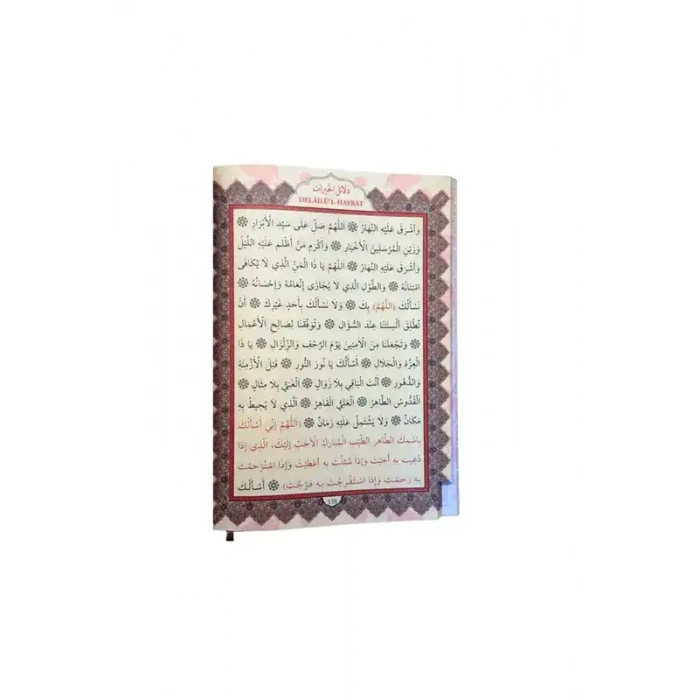 دلائل الخيرات
DELÂİLÜ'L-HAYRÂT
وَأَشْرَقَ عَلَيْهِ النَّهَارُ ۞ اَللّٰهُمَّ صَلِّ عَلَى سَيِّدِ الْأَبْرَارِ ۞
وَزَيْنِ الْمُرْسَلِينَ الْأَخْيَارِ ۞ وَأَكْرَمِ مَنْ أَظْلَمَ عَلَيْهِ اللَّيْلُ
وَأَشْرَقَ عَلَيْهِ النَّهَارُ ۞ اَللّٰهُمَّ يَا ذَا الْمَنِّ الَّذِي لَا يُكَافَى
امْتِنَانُهُ ۞ وَالطَّوْلِ الَّذِي لَا يُجَازَى إِنْعَامُهُ وَإِحْسَانُهُ ۞
نَسْأَلُكَ (اَللّٰهُمَّ) بِكَ ۞ وَلَا نَسْأَلُكَ بِأَحَدٍ غَيْرِكَ ۞ أَنْ
تُطْلِقَ أَلْسِنَتَنَا عِنْدَ السُّؤَالِ ۞ وَتُوَفِّقَنَا لِصَالِحِ الْأَعْمَالِ
۞ وَتَجْعَلَنَا مِنَ الْآمِنِينَ يَوْمَ الرَّجْفِ وَالزِّلْزَالِ ۞ يَا ذَا
الْعِزَّةِ وَالْجَلَالِ ۞ أَسْأَلُكَ يَا نُورَ النُّورِ ۞ قَبْلَ الْأَزْمِنَةِ
وَالدُّهُورِ ۞ أَنْتَ الْبَاقِي بِلَا زَوَالٍ ۞ الْغَنِيُّ بِلَا مِثَالٍ ۞
الْقُدُّوسُ الطَّاهِرُ ۞ الْعَلِيُّ الْقَاهِرُ ۞ الَّذِي لَا يُحِيطُ بِهِ
مَكَانٌ ۞ وَلَا يَشْتَمِلُ عَلَيْهِ زَمَانٌ ۞ (اَللّٰهُمَّ إِنِّي أَسْأَلُكَ
بِاسْمِكَ الطَّاهِرِ الطَّيِّبِ الْمُبَارَكِ الْأَحَبِّ إِلَيْكَ، الَّذِي إِذَا
دُعِيتَ بِهِ أَجَبْتَ وَإِذَا سُئِلْتَ بِهِ أَعْطَيْتَ وَإِذَا اسْتُرْحِمْتَ
بِهِ رَحِمْتَ وَإِذَا اسْتُفْرِجْتَ بِهِ فَرَّجْتَ) ۞ أَسْأَلُكَ